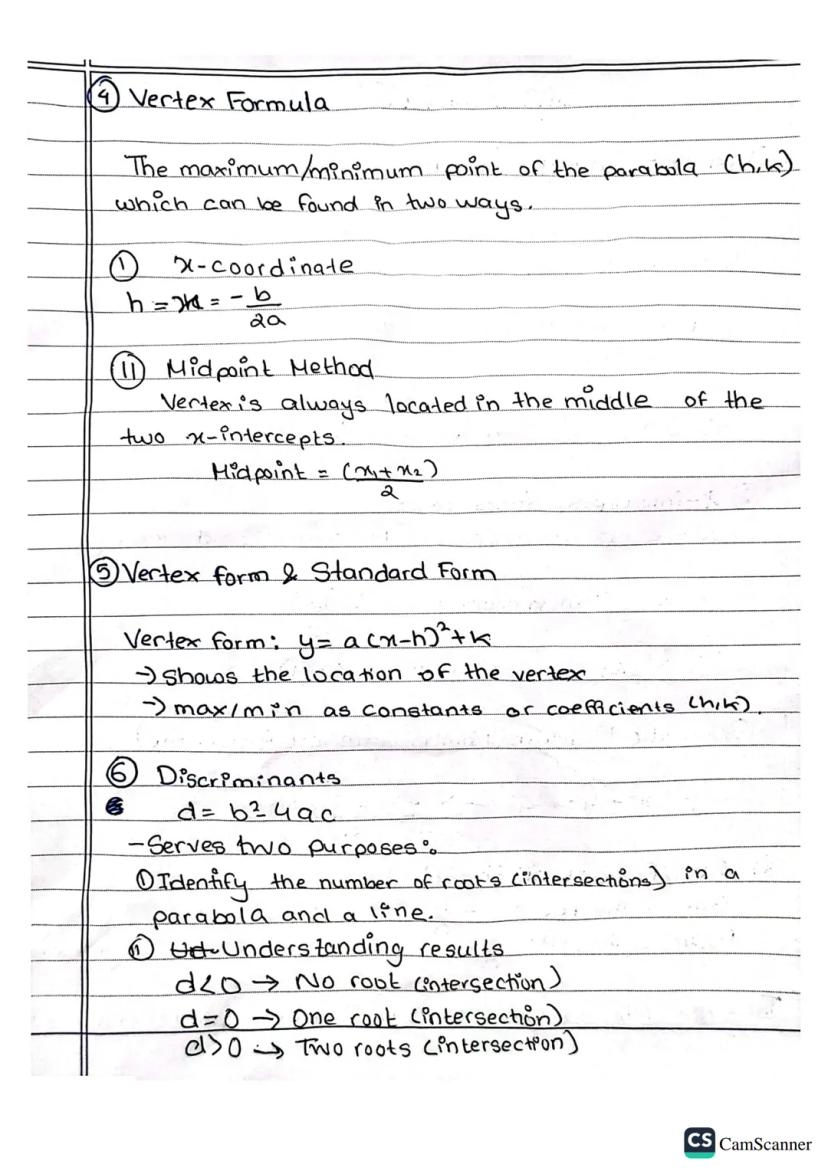 ④ Vertex Formula
The maximum/minimum point of the parabola (h,k)
which can be found in two ways.
① x-coordinate
h = x = -b/2a
⑪ Midpoint Method
Vertex is always located in the middle of the
two x-intercepts.
Midpoint = (x₁+x₂)/2
⑤ Vertex form & Standard Form
Vertex form: y = a(x-h)²+k
→ Shows the location of the vertex
→ max/min as constants or coefficients (h,k).
⑥ Discriminants
d = b²-4ac
- Serves two purposes:
① Identify the number of roots (intersections) in a
parabola and a line.
⑪ Understanding results
d<0 → No root (intersection)
d=0 → One root (intersection)
d>0 → Two roots (intersection)
CS CamScanner